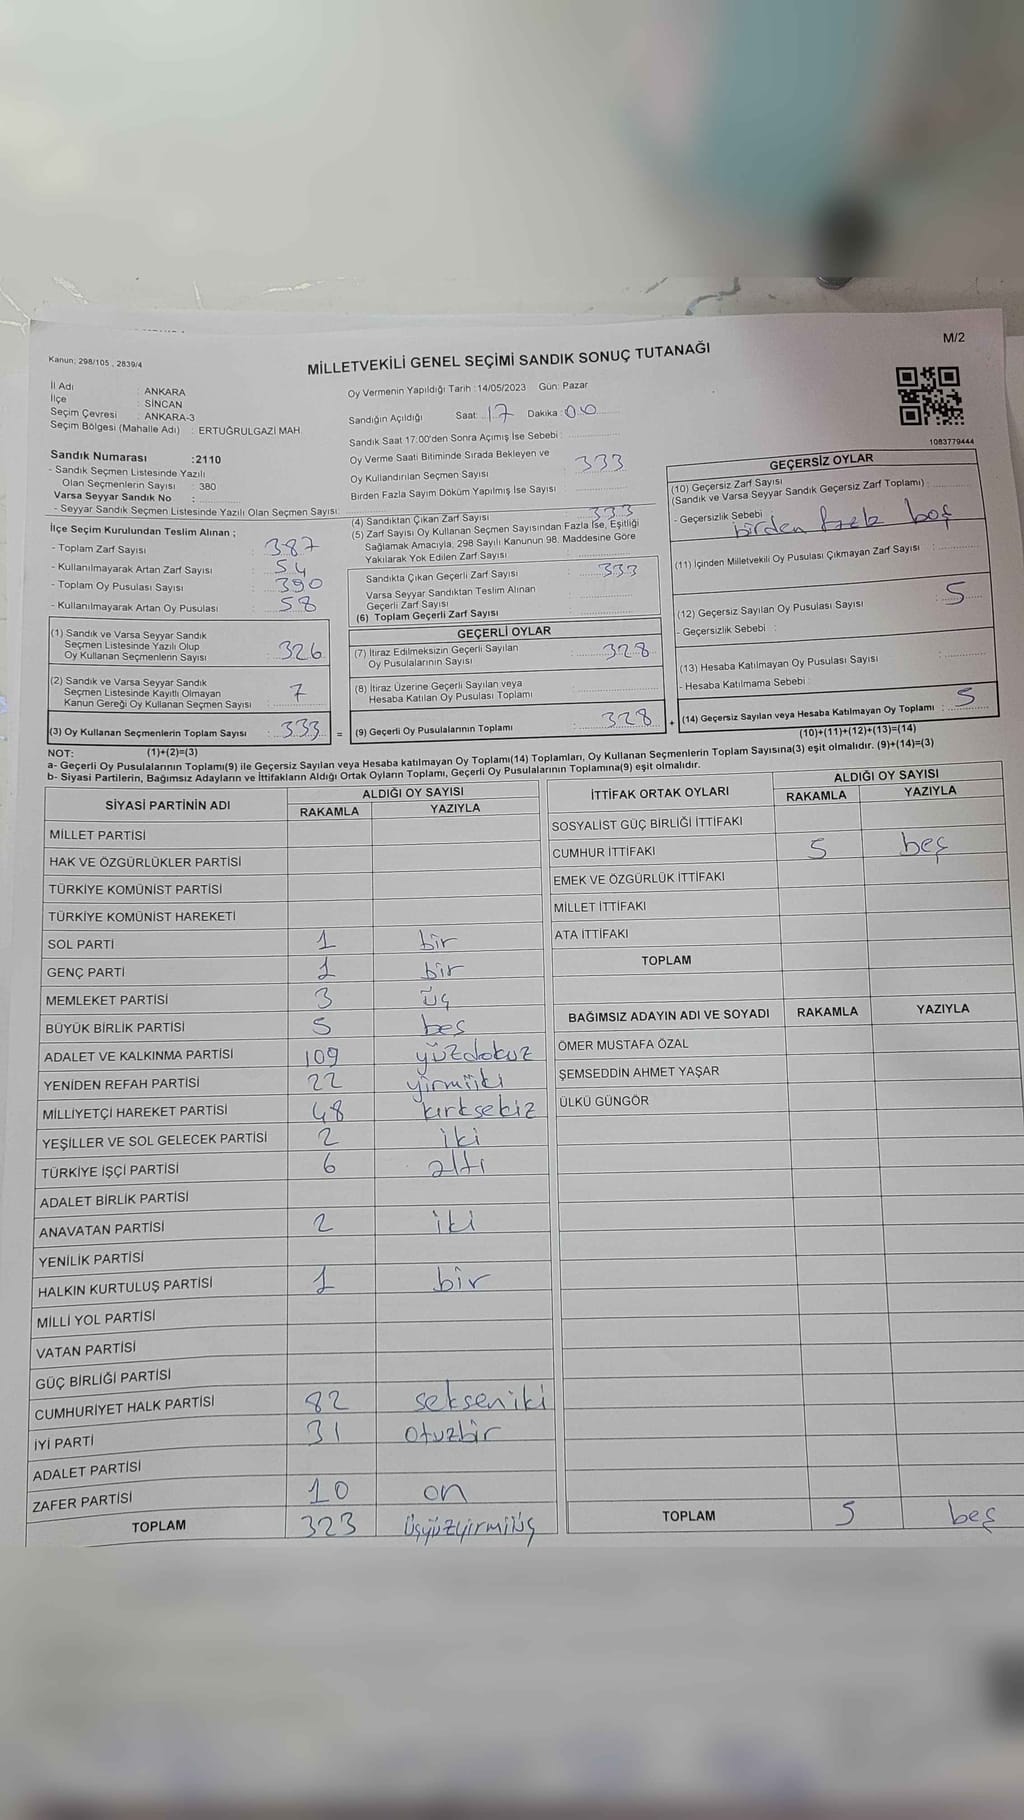 M/2
Kanun; 298/105 , 2839/4
MİLLETVEKİLİ GENEL SEÇİMİ SANDIK SONUÇ TUTANAĞI
İl Adı : ANKARA
İlçe : SİNCAN
Seçim Çevresi : ANKARA-3
Seçim Bölgesi (Mahalle Adı) : ERTUĞRULGAZİ MAH.
Sandık Numarası :2110
- Sandık Seçmen Listesinde Yazılı
Olan Seçmenlerin Sayısı : 380
Varsa Seyyar Sandık No :
- Seyyar Sandık Seçmen Listesinde Yazılı Olan Seçmen Sayısı:
Oy Vermenin Yapıldığı Tarih :14/05/2023 Gün: Pazar
Sandığın Açıldığı Saat: 17 Dakika :00
Sandık Saat 17:00'den Sonra Açımış İse Sebebi :
Oy Verme Saati Bitiminde Sırada Bekleyen ve
Oy Kullandırılan Seçmen Sayısı : 333
Birden Fazla Sayım Döküm Yapılmış İse Sayısı
1083779444
İlçe Seçim Kurulundan Teslim Alınan ;
- Toplam Zarf Sayısı : 387
- Kullanılmayarak Artan Zarf Sayısı : 54
- Toplam Oy Pusulası Sayısı : 390
- Kullanılmayarak Artan Oy Pusulası : 58
(1) Sandık ve Varsa Seyyar Sandık
Seçmen Listesinde Yazılı Olup
Oy Kullanan Seçmenlerin Sayısı : 326
(2) Sandık ve Varsa Seyyar Sandık
Seçmen Listesinde Kayıtlı Olmayan
Kanun Gereği Oy Kullanan Seçmen Sayısı : 7
(3) Oy Kullanan Seçmenlerin Toplam Sayısı : 333 =
(1)+(2)=(3)
(4) Sandıktan Çıkan Zarf Sayısı : 333
(5) Zarf Sayısı Oy Kullanan Seçmen Sayısından Fazla İse, Eşitliği
Sağlamak Amacıyla, 298 Sayılı Kanunun 98. Maddesine Göre
Yakılarak Yok Edilen Zarf Sayısı :
Sandıkta Çıkan Geçerli Zarf Sayısı : 333
Varsa Seyyar Sandıktan Teslim Alınan
Geçerli Zarf Sayısı :
(6) Toplam Geçerli Zarf Sayısı :
GEÇERLİ OYLAR
(7) İtiraz Edilmeksizin Geçerli Sayılan
Oy Pusulalarının Sayısı : 328
(8) İtiraz Üzerine Geçerli Sayılan veya
Hesaba Katılan Oy Pusulası Toplamı :
(9) Geçerli Oy Pusulalarının Toplamı : 328 +
GEÇERSİZ OYLAR
(10) Geçersiz Zarf Sayısı
(Sandık ve Varsa Seyyar Sandık Geçersiz Zarf Toplamı) :
- Geçersizlik Sebebi : birden fazla boş
(11) İçinden Milletvekili Oy Pusulası Çıkmayan Zarf Sayısı :
(12) Geçersiz Sayılan Oy Pusulası Sayısı : 5
- Geçersizlik Sebebi :
(13) Hesaba Katılmayan Oy Pusulası Sayısı :
- Hesaba Katılmama Sebebi :
(14) Geçersiz Sayılan veya Hesaba Katılmayan Oy Toplamı : 5
(10)+(11)+(12)+(13)=(14)
NOT:
a- Geçerli Oy Pusulalarının Toplamı(9) ile Geçersiz Sayılan veya Hesaba katılmayan Oy Toplamı(14) Toplamları, Oy Kullanan Seçmenlerin Toplam Sayısına(3) eşit olmalıdır. (9)+(14)=(3)
b- Siyasi Partilerin, Bağımsız Adayların ve İttifakların Aldığı Ortak Oyların Toplamı, Geçerli Oy Pusulalarının Toplamına(9) eşit olmalıdır.
SİYASİ PARTİNİN ADI ALDIĞI OY SAYISI
RAKAMLA YAZIYLA
MİLLET PARTİSİ
HAK VE ÖZGÜRLÜKLER PARTİSİ
TÜRKİYE KOMÜNİST PARTİSİ
TÜRKİYE KOMÜNİST HAREKETİ
SOL PARTİ 1 bir
GENÇ PARTİ 1 bir
MEMLEKET PARTİSİ 3 üç
BÜYÜK BİRLİK PARTİSİ 5 beş
ADALET VE KALKINMA PARTİSİ 109 yüzdokuz
YENİDEN REFAH PARTİSİ 22 yirmiiki
MİLLİYETÇİ HAREKET PARTİSİ 48 kırksekiz
YEŞİLLER VE SOL GELECEK PARTİSİ 2 iki
TÜRKİYE İŞÇİ PARTİSİ 6 altı
ADALET BİRLİK PARTİSİ
ANAVATAN PARTİSİ 2 iki
YENİLİK PARTİSİ
HALKIN KURTULUŞ PARTİSİ 1 bir
MİLLİ YOL PARTİSİ
VATAN PARTİSİ
GÜÇ BİRLİĞİ PARTİSİ
CUMHURİYET HALK PARTİSİ 82 sekseniki
İYİ PARTİ 31 otuzbir
ADALET PARTİSİ
ZAFER PARTİSİ 10 on
TOPLAM 323 üçyüzyirmiüç
İTTİFAK ORTAK OYLARI ALDIĞI OY SAYISI
RAKAMLA YAZIYLA
SOSYALİST GÜÇ BİRLİĞİ İTTİFAKI
CUMHUR İTTİFAKI 5 beş
EMEK VE ÖZGÜRLÜK İTTİFAKI
MİLLET İTTİFAKI
ATA İTTİFAKI
TOPLAM
BAĞIMSIZ ADAYIN ADI VE SOYADI RAKAMLA YAZIYLA
ÖMER MUSTAFA ÖZAL
ŞEMSEDDİN AHMET YAŞAR
ÜLKÜ GÜNGÖR
TOPLAM 5 beş